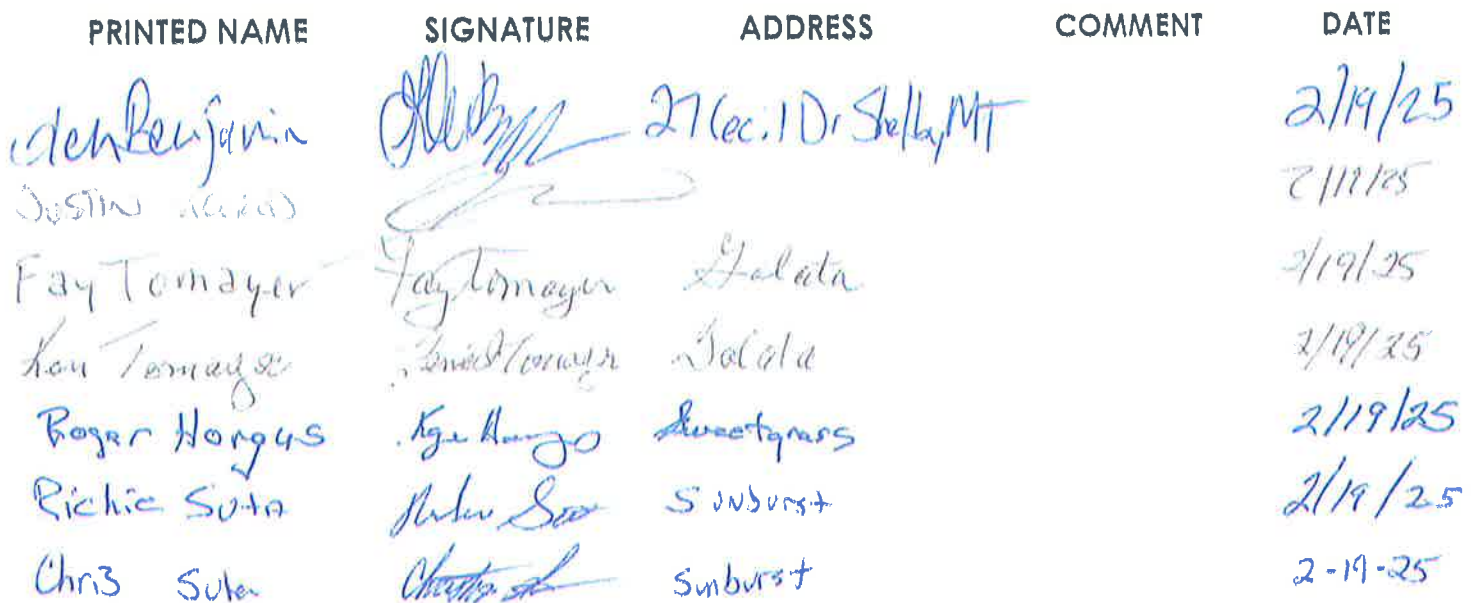 PRINTED NAME SIGNATURE ADDRESS COMMENT DATE
Benjamin 27 Cecil Dr Shelby, MT 2/19/25
JUSTIN 2/19/25
Fay Tomayer Fay Tomayer Galata 2/19/25
Ken Tomayer Tomayer Galata 2/19/25
Roger Horgus Sweetgrass 2/19/25
Richie Suta Sunburst 2/19/25
Chris Suta Sunburst 2-19-25